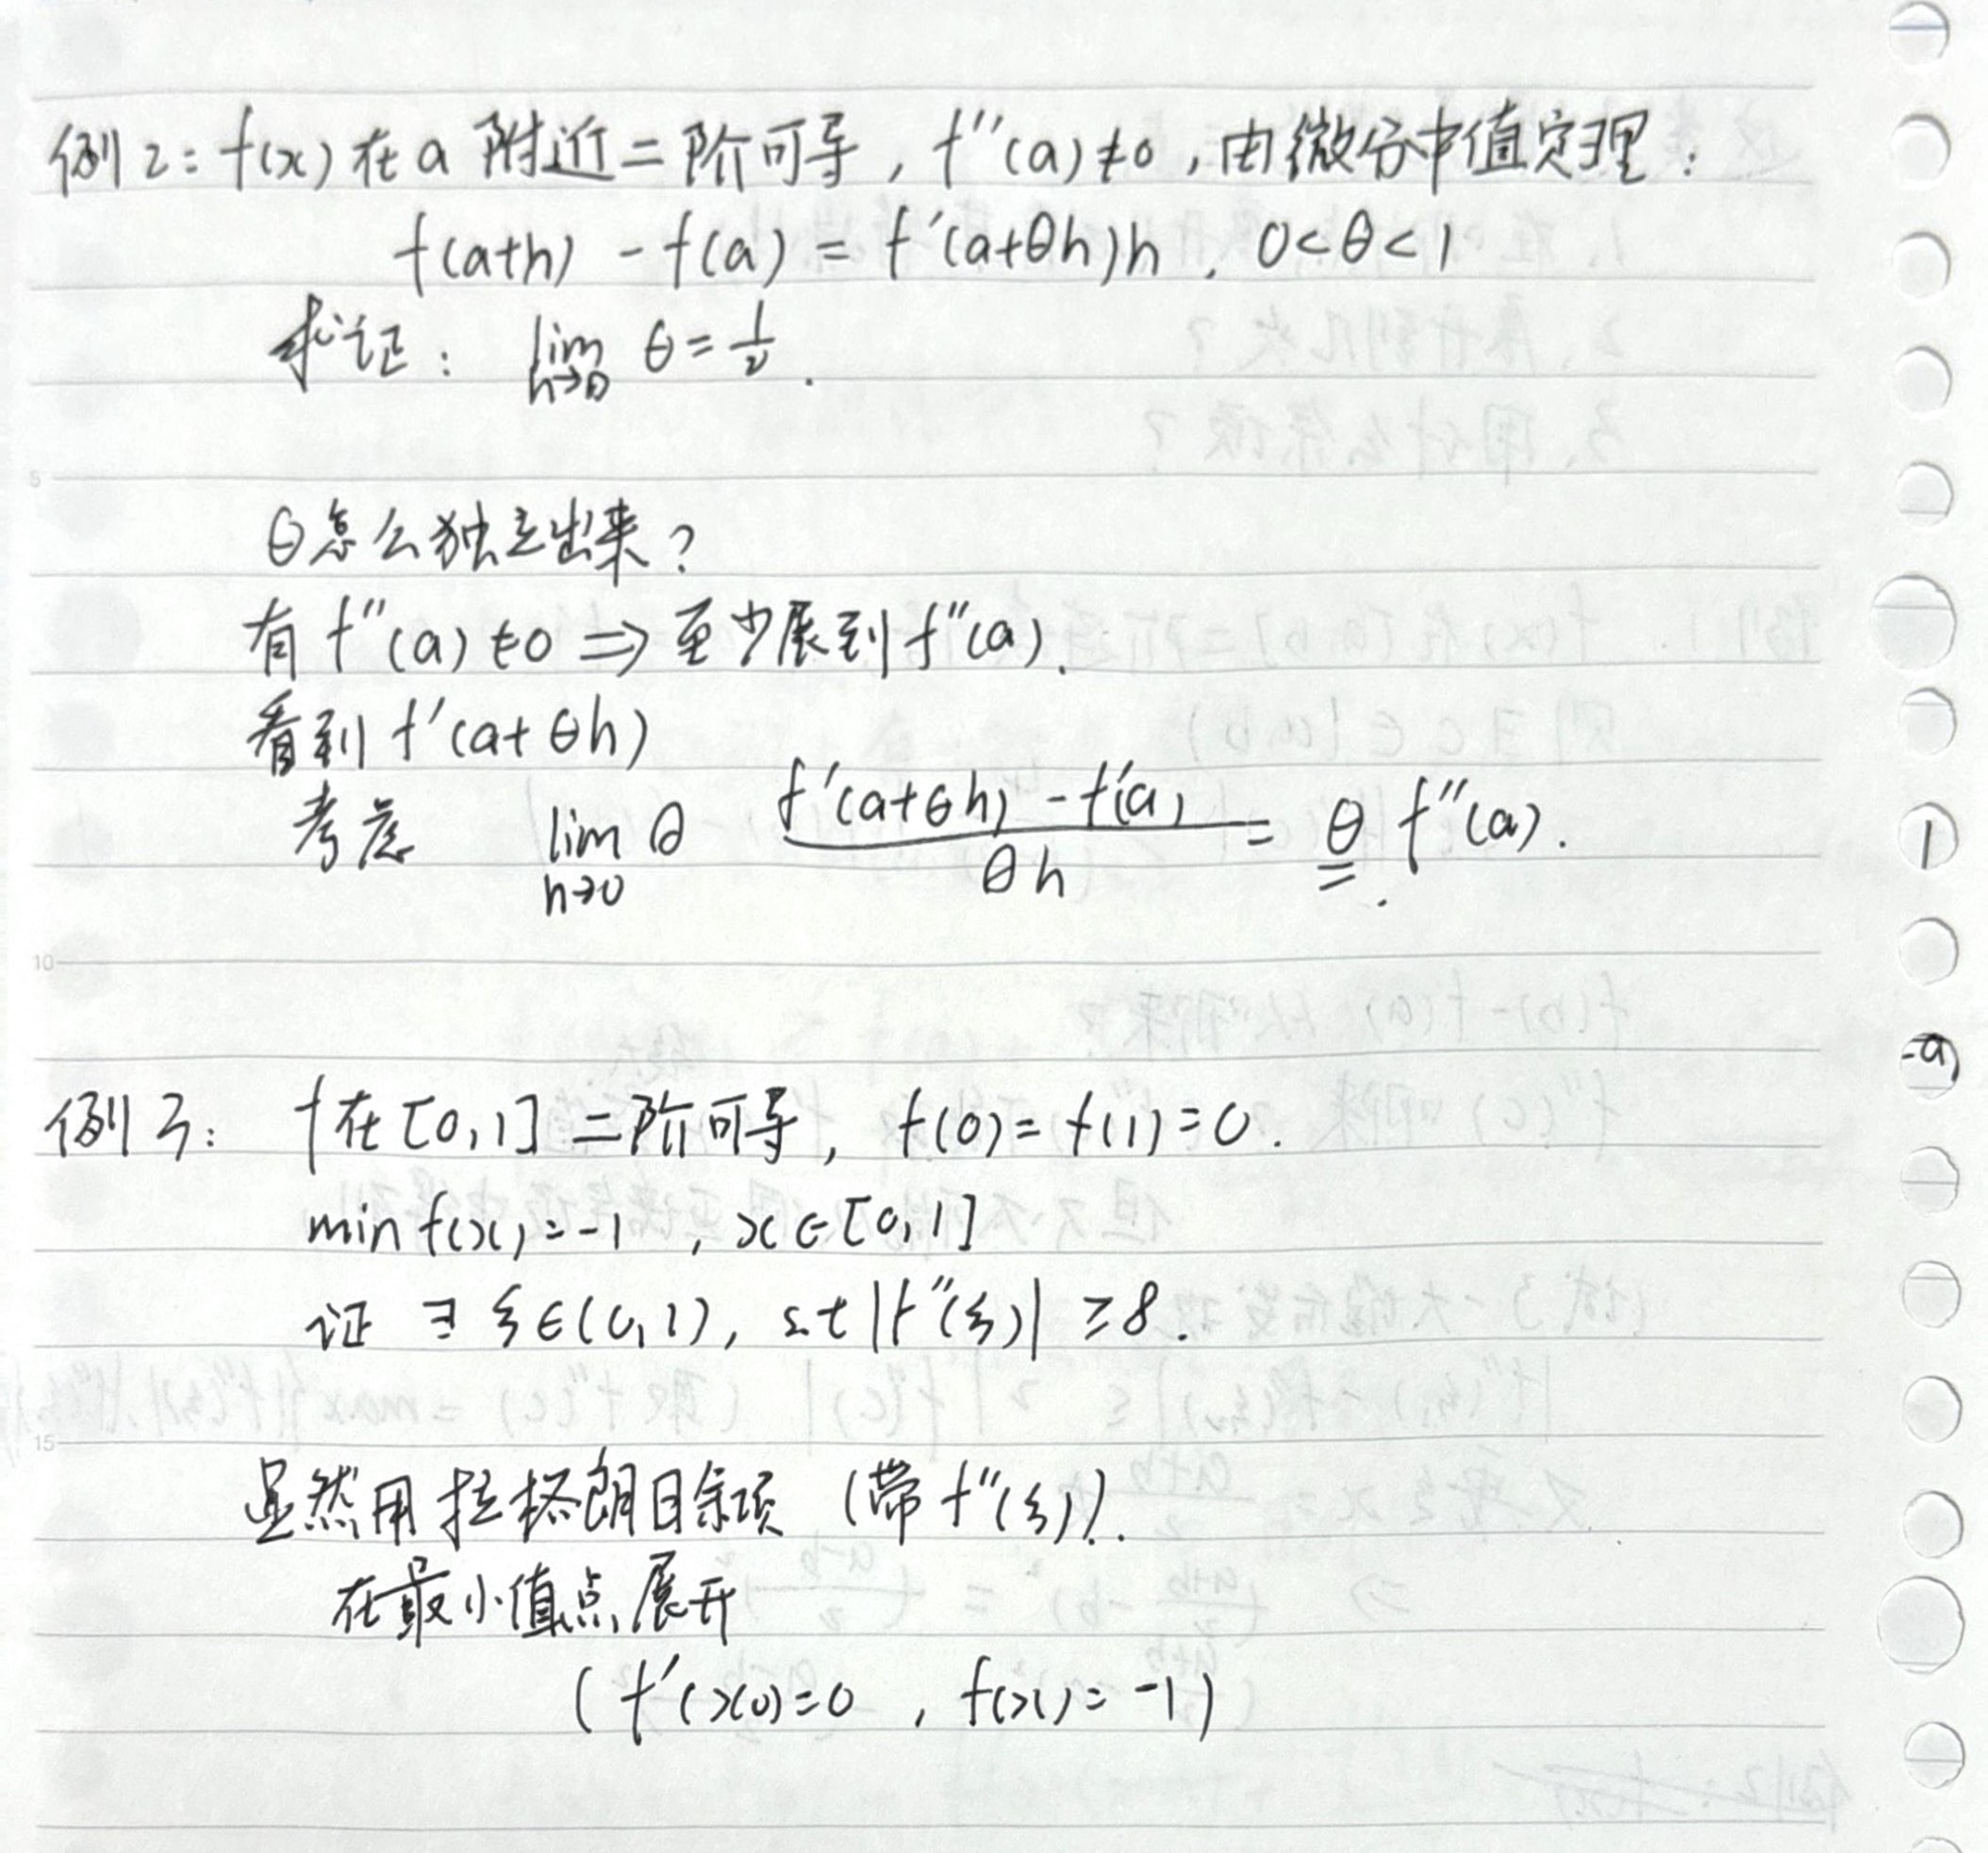 例2: f(x) 在 a 附近二阶可导, f''(a)≠0, 由微分中值定理:
f(a+h) - f(a) = f'(a+θh)h, 0<θ<1
求证: lim h→0 θ = 1/2.
5
θ怎么独立出来?
有 f''(a)≠0 ⇒ 至少展到 f''(a).
看到 f'(a+θh)
考虑 lim h→0 θ (f'(a+θh) - f'(a))/(θh) = θ f''(a).
10
例3: f在[0,1]二阶可导, f(0)=f(1)=0.
min f(x)=-1, x∈[0,1]
证 ∃ ξ∈(0,1), s.t |f''(ξ)| ≥8.
15
显然用拉格朗日余项 (带 f''(ξ)).
在最小值点展开
(f'(x0)=0, f(x)=-1)
1
-a)